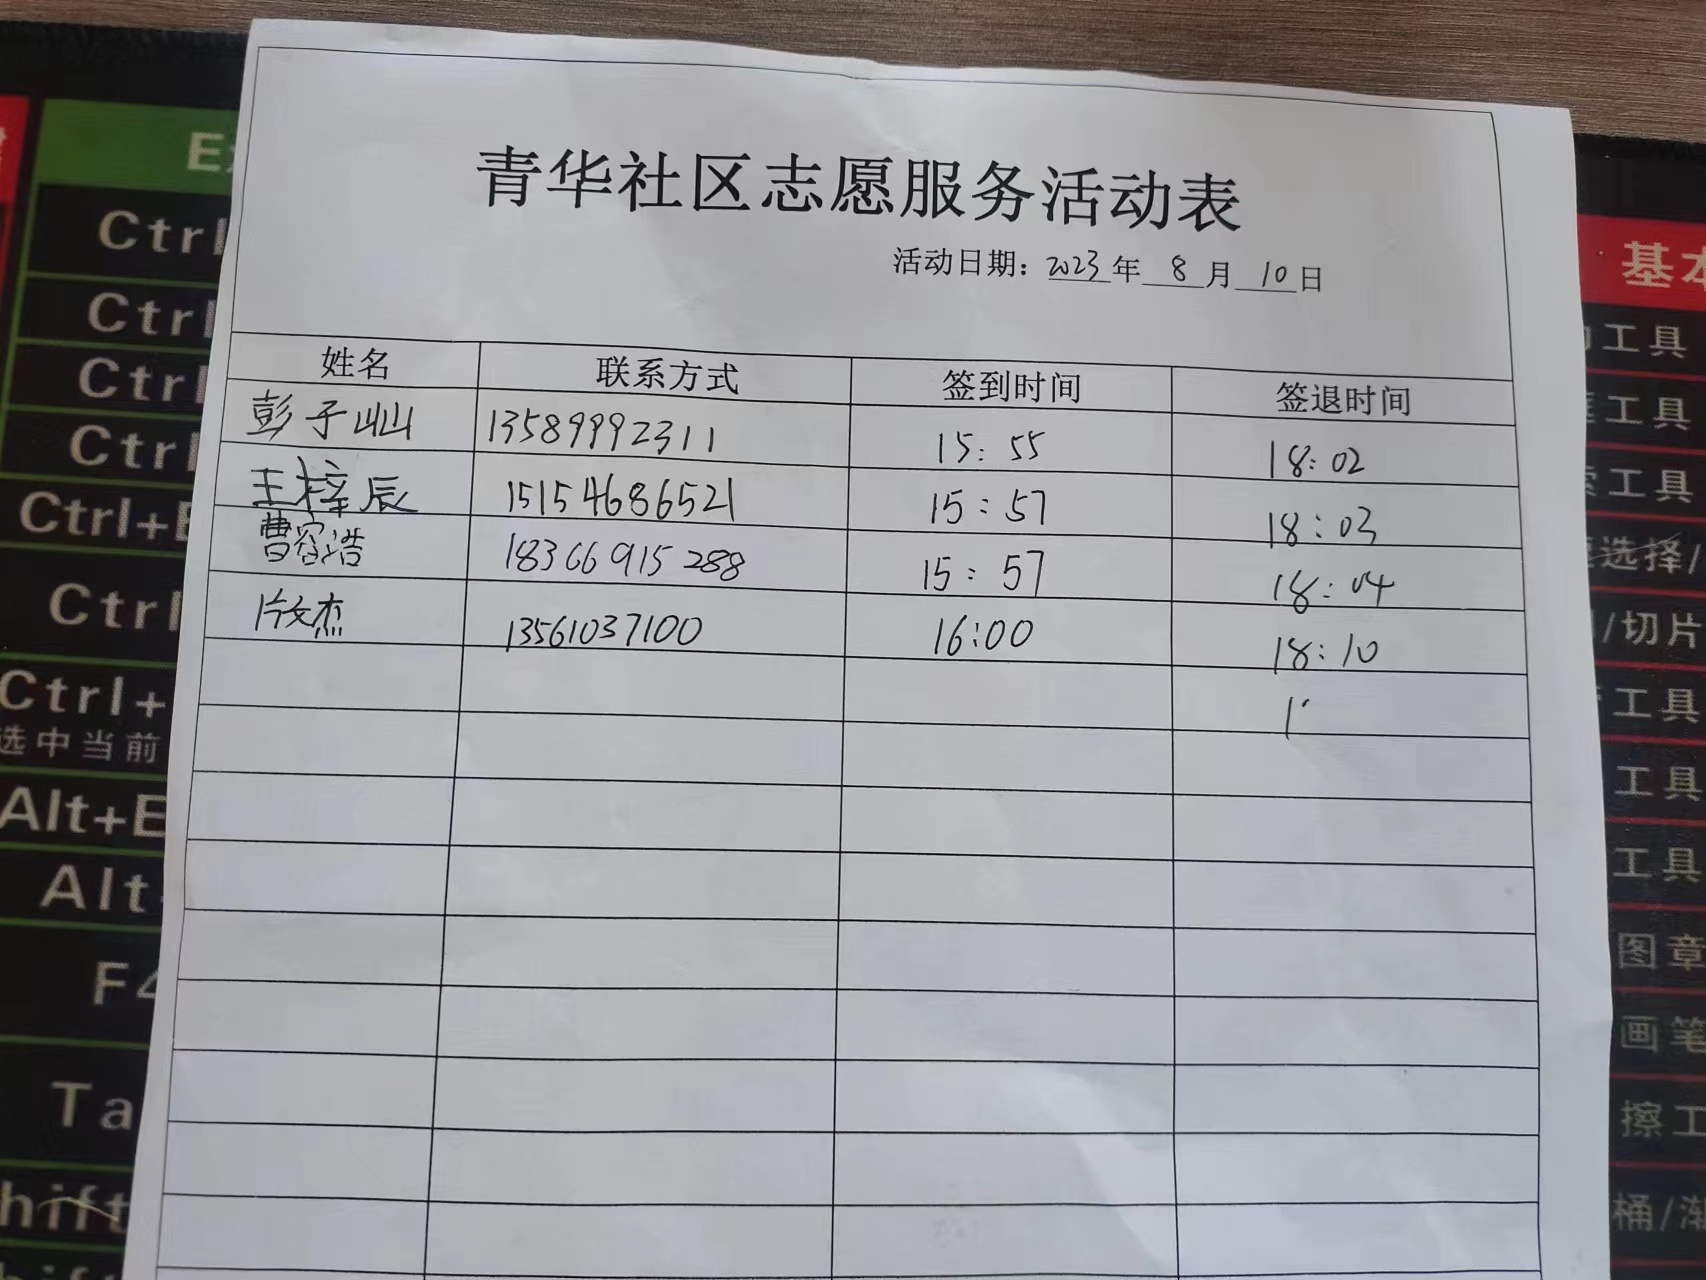 青华社区志愿服务活动表
活动日期：2023年 8 月 10 日
姓名 联系方式 签到时间 签退时间
彭子山山 13589992311 15:55 18:02
王梓辰 15154686521 15:57 18:03
曹容浩 18366915288 15:57 18:04
杰 13561037100 16:00 18:10
Ctrl
Ctrl
Ctrl
Ctrl
Ctrl+E
Ctrl
Ctrl+
选中当前
Alt+E
Alt
F4
Ta
hift
基本
工具
工具
工具
选择/
/切片
工具
工具
工具
图章
画笔
擦工
桶/渐